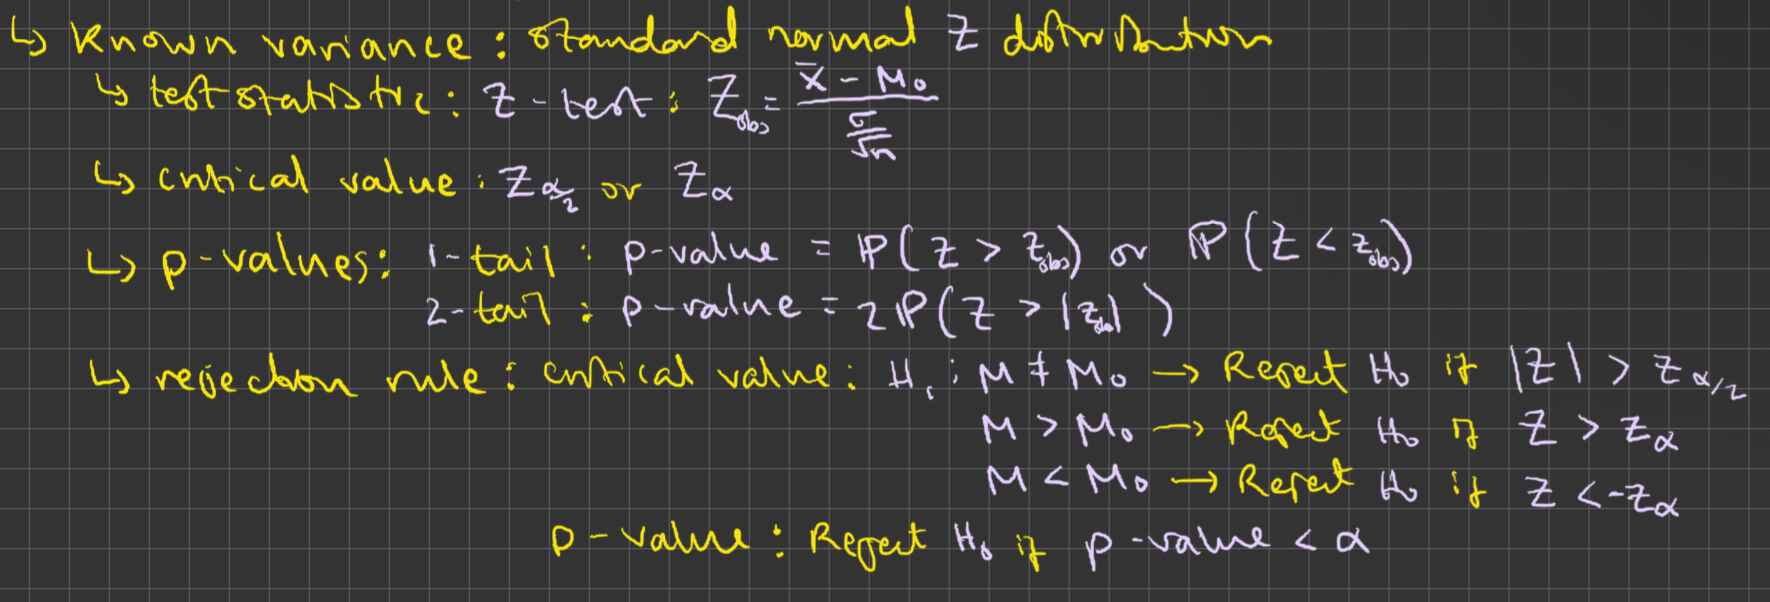 ↳ Known variance : standard normal Z distribution
↳ test statistic : Z-test : Z_obs = (x̄ - μ₀) / (σ/√n)
↳ critical value : Z_α/2 or Z_α
↳ p-values : 1-tail : p-value = ℙ(Z > z_obs) or ℙ(Z < z_obs)
2-tail : p-value = 2ℙ(Z > |z_obs|)
↳ rejection rule : critical value : H₁ : μ ≠ μ₀ → Reject H₀ if |Z| > Z_α/2
μ > μ₀ → Reject H₀ if Z > Z_α
μ < μ₀ → Reject H₀ if Z < -Z_α
p-value : Reject H₀ if p-value < α